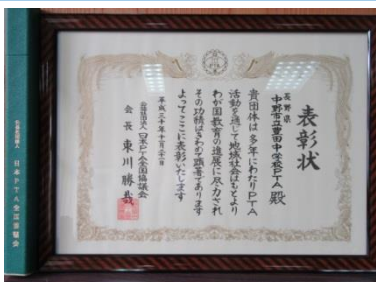 表彰状
長野県
中野市立豊田中学校PTA 殿
貴団体は多年にわたりPTA
活動を通じて地域社会はもとより
わが国教育の進展に尽力され
その功績はきわめて顕著であります
よってここに表彰いたします
平成三十年十一月二十二日
公益社団法人 日本PTA全国協議会
会長 東川勝哉
公益社団法人 日本PTA全国協議会